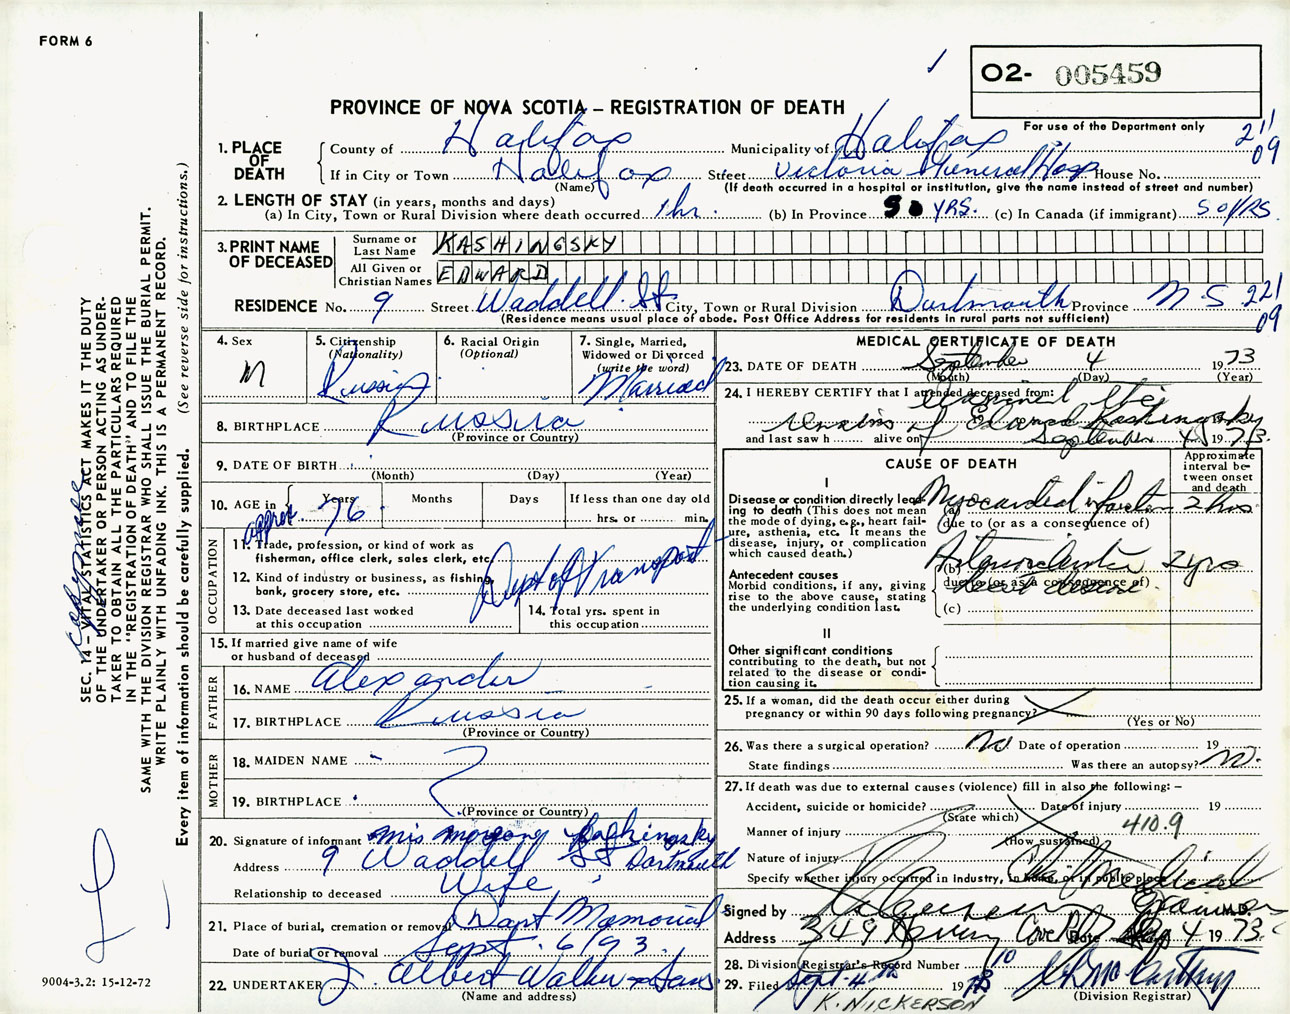 FORM 6
O2- 005459
PROVINCE OF NOVA SCOTIA – REGISTRATION OF DEATH
For use of the Department only
1. PLACE OF DEATH
County of Halifax Municipality of Halifax 211
If in City or Town Halifax Street Victoria General Hosp House No. 09
(Name) (If death occurred in a hospital or institution, give the name instead of street and number)
2. LENGTH OF STAY (in years, months and days)
(a) In City, Town or Rural Division where death occurred 1 hr. (b) In Province 50 YRS. (c) In Canada (if immigrant) 50 YRS.
3. PRINT NAME OF DECEASED
Surname or Last Name KASHINGSKY
All Given or Christian Names EDWARD
RESIDENCE No. 9 Street Waddell St City, Town or Rural Division Dartmouth Province N.S 221
(Residence means usual place of abode. Post Office Address for residents in rural parts not sufficient) 09
4. Sex M
5. Citizenship (Nationality) Russian
6. Racial Origin (Optional)
7. Single, Married, Widowed or Divorced (write the word) Married
8. BIRTHPLACE Russia
(Province or Country)
9. DATE OF BIRTH
(Month) (Day) (Year)
10. AGE in Years Months Days If less than one day old
approx. 76 hrs. or min.
OCCUPATION
11. Trade, profession, or kind of work as fisherman, office clerk, sales clerk, etc.
Dept of Transport
12. Kind of industry or business, as fishing, bank, grocery store, etc.
13. Date deceased last worked at this occupation
14. Total yrs. spent in this occupation
15. If married give name of wife or husband of deceased
FATHER
16. NAME Alexander
17. BIRTHPLACE Russia
(Province or Country)
MOTHER
18. MAIDEN NAME -
19. BIRTHPLACE ?
(Province or Country)
20. Signature of informant Kashingsky
Address 9 Waddell St Dartmouth
Relationship to deceased Wife
21. Place of burial, cremation or removal Dart Memorial
Date of burial or removal Sept. 6/93
22. UNDERTAKER J. Albert Walker & Sons
(Name and address)
MEDICAL CERTIFICATE OF DEATH
23. DATE OF DEATH September 4 1973
(Month) (Day) (Year)
24. I HEREBY CERTIFY that I attended deceased from: Examined the
remains of Edward Kashingsky
and last saw h alive on September 4 1973.
CAUSE OF DEATH
Approximate interval between onset and death
I
Disease or condition directly leading to death (This does not mean the mode of dying, e.g., heart failure, asthenia, etc. It means the disease, injury, or complication which caused death.)
(a) Myocardial infarction 2 hrs
due to (or as a consequence of)
Antecedent causes
Morbid conditions, if any, giving rise to the above cause, stating the underlying condition last.
(b) Arteriosclerotic 2 yrs
due to (or as a consequence of)
heart disease
(c)
II
Other significant conditions
contributing to the death, but not related to the disease or condition causing it.
25. If a woman, did the death occur either during pregnancy or within 90 days following pregnancy?
(Yes or No)
26. Was there a surgical operation? No Date of operation 19
State findings Was there an autopsy? No.
27. If death was due to external causes (violence) fill in also the following: –
Accident, suicide or homicide? Date of injury 19
(State which)
Manner of injury 410.9
(How sustained)
Nature of injury
Specify whether injury occurred in Industry, in home, or in public place
Medical Examiner
Signed by M.D.
Address 349 Cove Rd Date 4 1973
28. Division Registrar's Record Number 10
29. Filed Sept 4th 1973
(Division Registrar)
K. NICKERSON
SEC. 14 – VITAL STATISTICS ACT MAKES IT THE DUTY
OF THE UNDERTAKER OR PERSON ACTING AS UNDER-
TAKER TO OBTAIN ALL THE PARTICULARS REQUIRED
IN THE "REGISTRATION OF DEATH" AND TO FILE THE
SAME WITH THE DIVISION REGISTRAR WHO SHALL ISSUE THE BURIAL PERMIT.
WRITE PLAINLY WITH UNFADING INK. THIS IS A PERMANENT RECORD.
Every item of information should be carefully supplied. (See reverse side for instructions.)
9004-3.2: 15-12-72